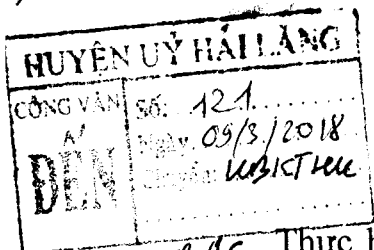 HUYỆN UỶ HẢI LĂNG
CÔNG VĂN
ĐẾN
Số: 121
Ngày: 09/3/2018
Chuyển: UBKTHU
Thực